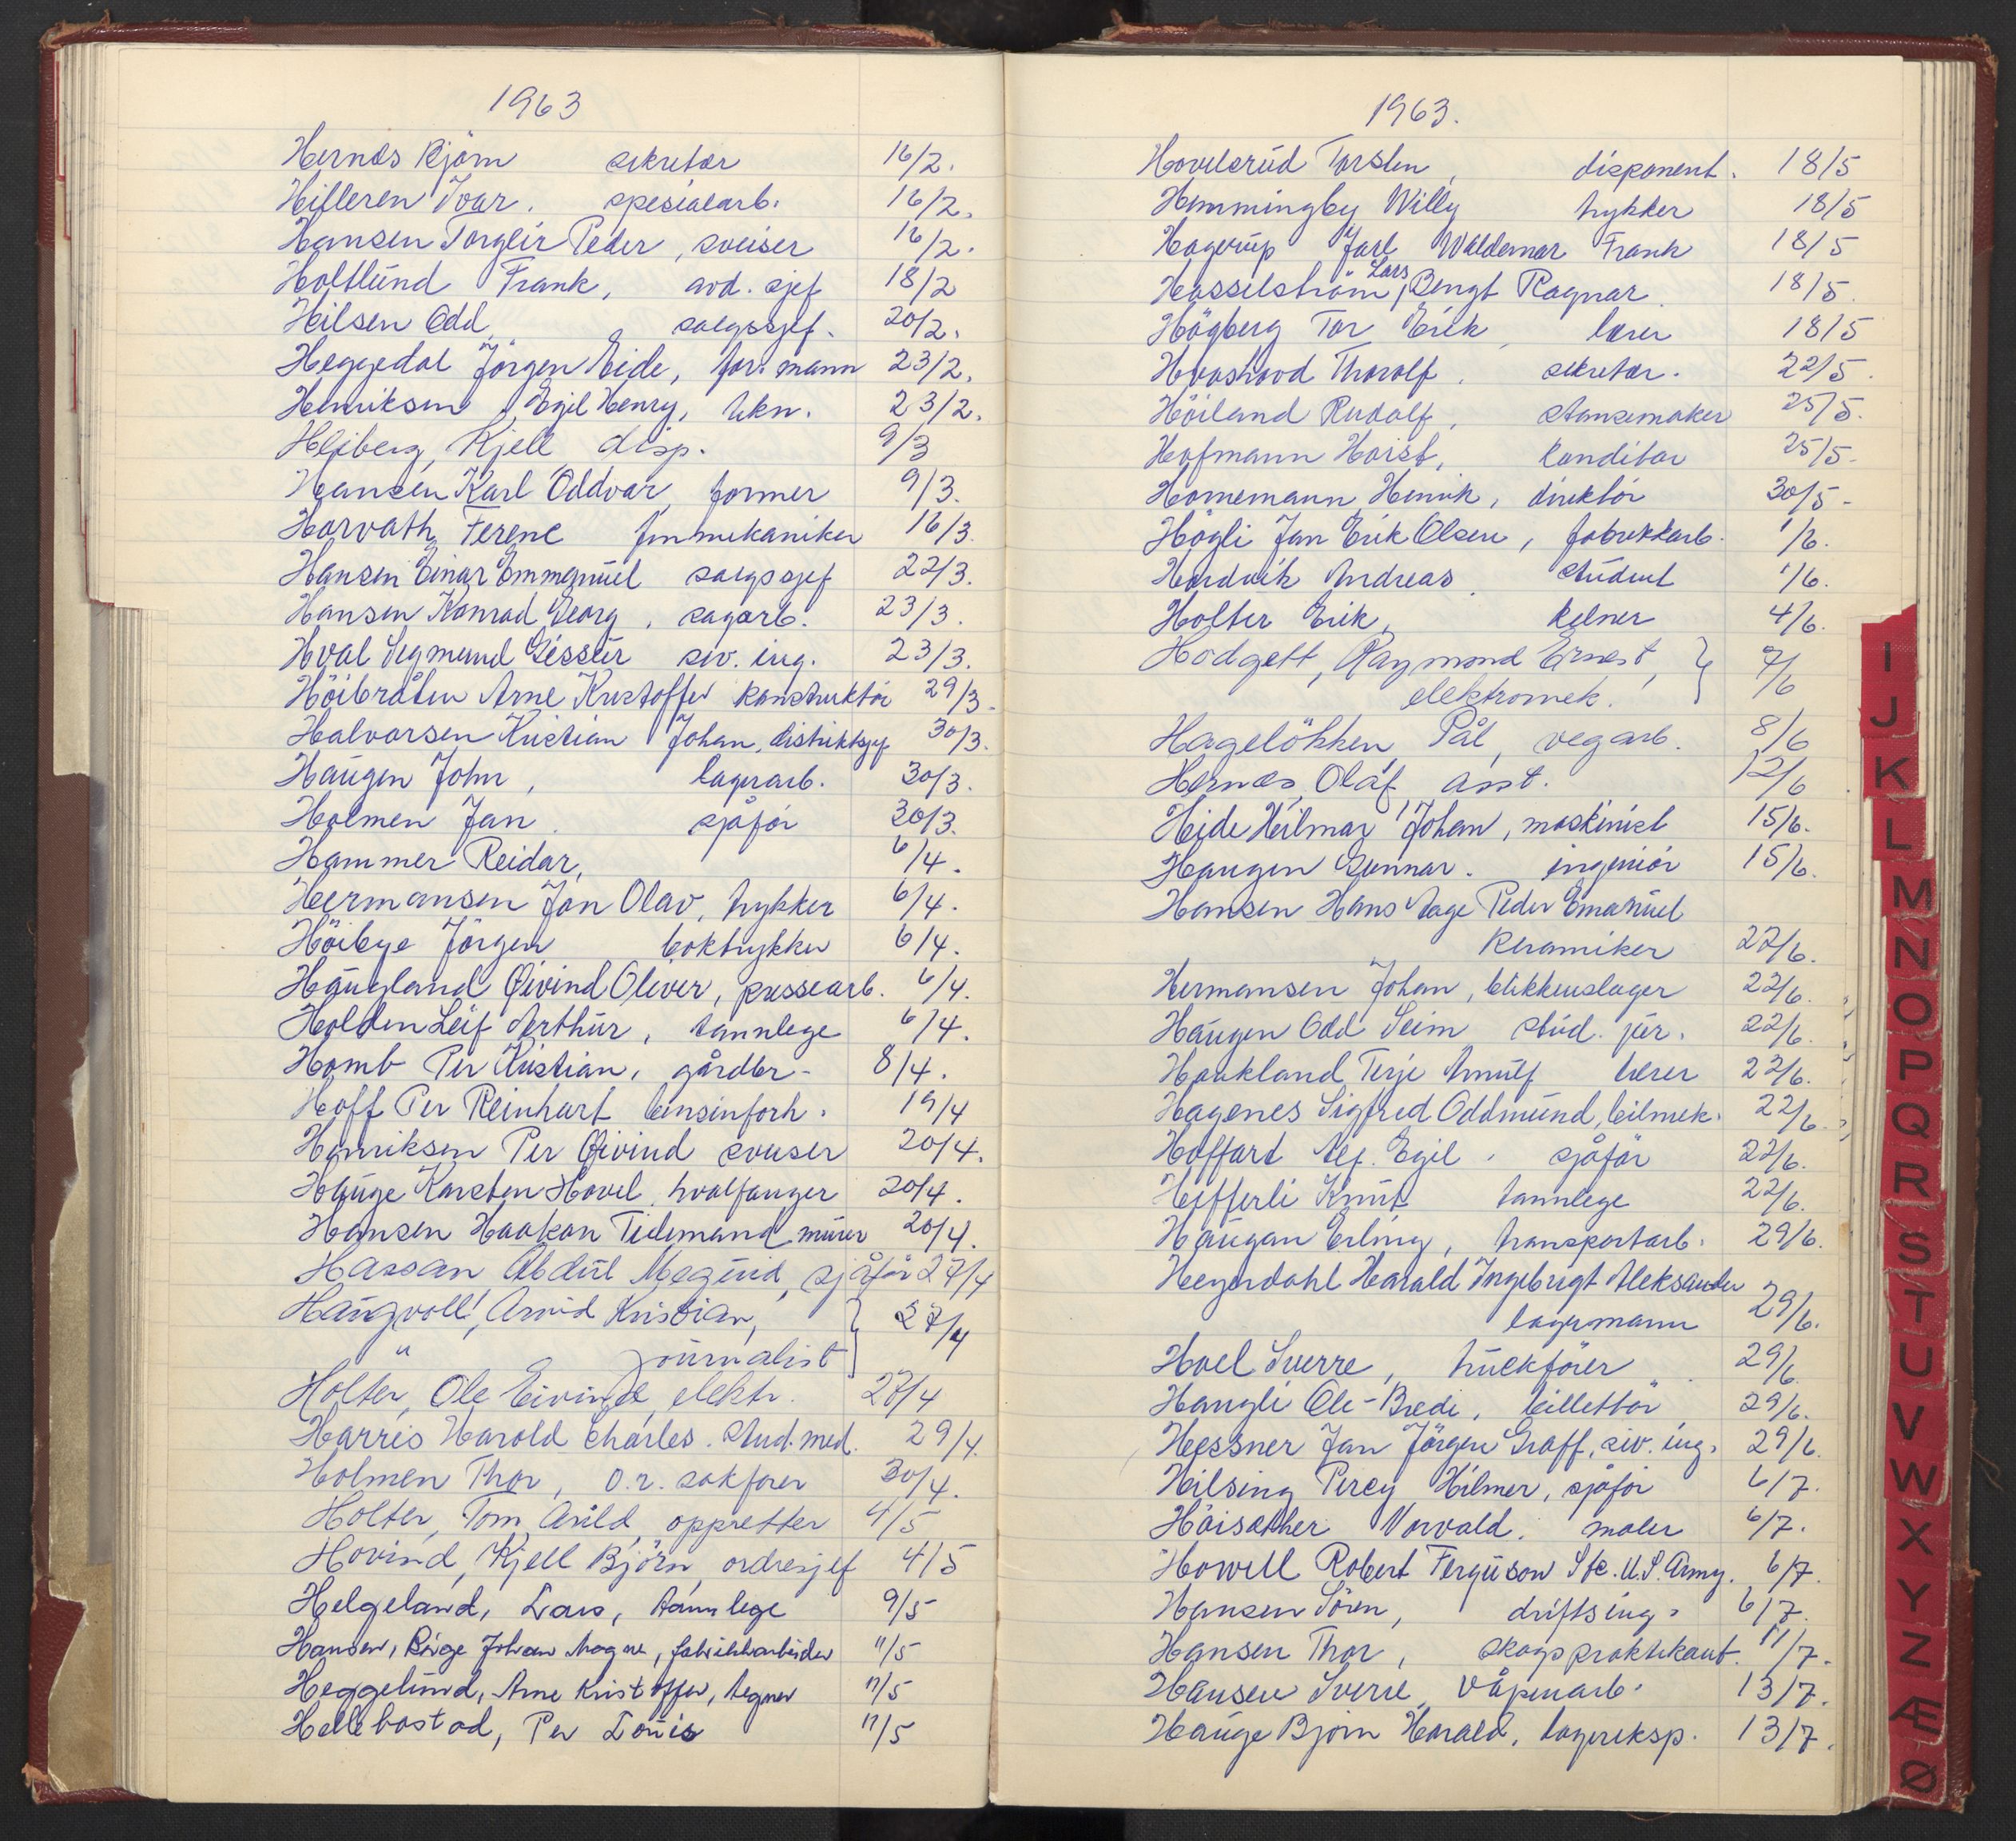 1963
Hernæs Bjørn sekretær 16/2.
Hilleren Ivar. spesialarb. 16/2.
Hansen Torgeir Peder, sveiser 16/2.
Holtlund Frank, avd. sjef 18/2
Hilsen Odd salgssjef. 20/2.
Heggedal Jörgen Eide, for. mann 23/2.
Henriksen Egil Henry, tekn. 23/2.
Heiberg, Kjell disp. 9/3
Hansen Karl Oddvar, former 9/3.
Horvath Ferenc finmekaniker 16/3.
Hansen Einar Emmanuel salgssjef 22/3.
Hansen Konrad Georg, sagarb. 23/3.
Hval Sigmund Gissur siv. ing. 23/3.
Höibråten Arne Kristoffer konstruktör 29/3.
Halvorsen Kristian Johan, distriktssjef 30/3.
Haugen John, lagerarb. 30/3.
Holmen Jan. sjåför 30/3.
Hammer Reidar, 6/4.
Hermansen Jan Olav, trykker 6/4.
Höibye Jörgen boktrykker 6/4.
Haugland Øivind Oliver, pussearb. 6/4.
Holden Leif Arthur, tannlege 6/4.
Homb Per Kristian, gårdbr. 8/4.
Hoff Per Reinhart bensinforh. 19/4
Henriksen Per Øivind sveiser 20/4.
Hauge Karsten Havel, hvalfanger 20/4.
Hansen Haakon Tidemand murer 20/4.
Hassan Abdul Meguid, sjåför 27/4
Haugvoll, Arvid Kristian, } 27/4
" journalist
Holter, Ole Eivind, elektr. 27/4
Harris Harold Charles. Stud. med. 29/4.
Holmen Thor, o.r. sakförer 30/4.
Holter, Tom Arild, oppretter 4/5
Hovind, Kjell Björn, ordresjef 4/5
Helgeland, Lars, tannlege 9/5
Hansen, Börge Johan Magne, fabrikkarbeider 11/5
Heggelund, Arne Kristoffer, tegner 11/5
Hellebostad, Per Louis 11/5
1963.
Hovelsrud Torsten, disponent. 18/5
Hemmingby Willy trykker 18/5
Hagerup Jarl Waldemar Frank 18/5
Hasselström, Lars Bengt Ragnar. 18/5.
Högberg Tor Erik, lærer 18/5
Hvoshovd Thorolf. sekretær. 22/5.
Höiland Rudolf, stansemaker 25/5.
Hofmann Horst, konditor 25/5.
Hornemann Henrik, direktör 30/5.
Högli Jan Erik Olsen, fabrikkarb. 1/6.
Hardvik Andreas. student 1/6.
Holter Erik, kelner 4/6.
Hodgett, Raymond Ernest, } 7/6
elektromek.
Hagelökken, Pål, vegarb. 8/6
Hernæs, Olaf, asst. 12/6
Heide Hilmar Johan, maskinist 15/6.
Haugen Gunnar. ingeniör 15/6.
Hansen Hans Aage Peder Emanuel
keramiker 22/6.
Hermansen Johan, blikkenslager 22/6.
Haugen Odd Seim stud. jur. 22/6.
Haukland Terje Arnulf lærer 22/6.
Hagenes Sigfred Oddmund, bilmek. 22/6.
Hoffart Alf. Egil. sjåför 22/6.
Hefferli Knut tannlege 22/6.
Haugan Erling, transportarb. 29/6.
Heyerdahl Harald Ingebrigt Aleksander
lagermann 29/6.
Hoel Sverre, truckförer 29/6.
Haugli Ole-Brede, billettör 29/6.
Hessner Jan Jörgen Graff, siv. ing. 29/6
Hilsing Percy Hilmer, sjåför 6/7.
Höisæther Norvald. maler 6/7.
Howell Robert Ferguson Sfc. U.S. Army. 6/7.
Hansen Sören, driftsing. 6/7.
Hansen Thor, skogspraktikant. 11/7.
Hansen Sverre, våpenarb. 13/7.
Hauge Björn Harald, lagereksp. 13/7.
I
J
K
L
M
N
O
P
Q
R
S
T
U
V
W
X
Y
Z
Æ
Ø